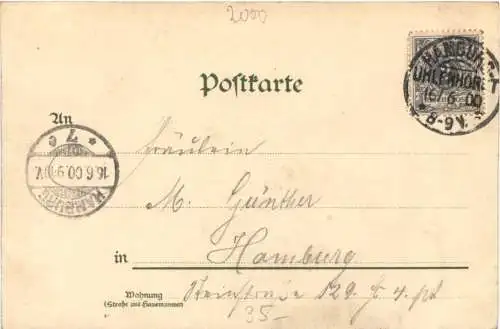 2000
Postkarte
HAMBURG
UHLENHORST
16/6.00
8-9V.
An
* 7 c *
16.6.00.9
HAMBURG
Fräulein
M. Günther
in Hamburg
Wohnung
(Straße und Hausnummer)
129
35-